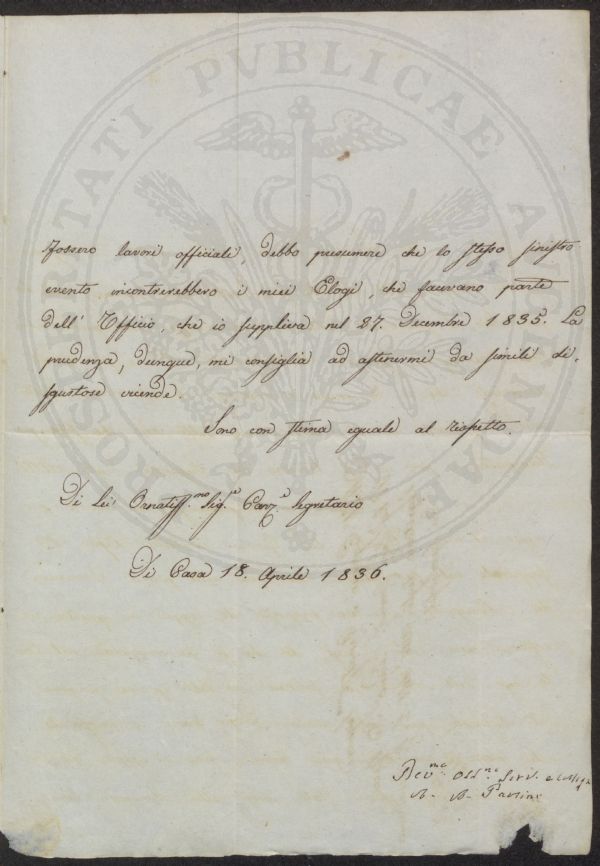 PROSPERITATI PVBLICAE AVGENDAE
fossero lavori officiali, debbo presumere che lo stesso sinistro
evento incontrerebbero i miei Elogi, che facevano parte
dell' Officio, che io suppliva nel 27. Decembre 1835. La
prudenza, dunque, mi consiglia ad astenermi da simili di-
sgustose vicende.
Sono con stima eguale al rispetto.
Di Lei Ornatiss.mo Sig.r Segretario
Di Casa 18. Aprile 1836.
Dev.mo Obb.mo Serv. e Collega